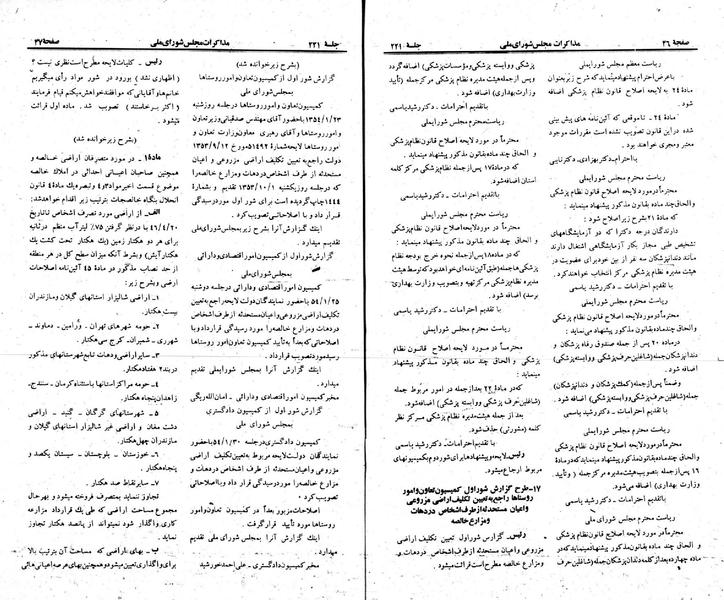 صفحهٔ ۳۶
مذاکرات مجلس شورای ملی
جلسهٔ ۲۲۱
ریاست معظم مجلس شورایملی
باعرض احترام پیشنهاد مینماید که شرح زیر بعنوان
مادهٔ ۲۴ به لایحه اصلاح قانون نظام پزشکی اضافه
شود.
مادهٔ ۲۴ـ تا موقعی که آئین‌نامه های پیش بینی
شده در این قانون تصویب نشده است مقررات موجود
معتبر و مجری خواهند بود.
با احترام ـ دکتر بهزادی ـ دکتر نایبی
ریاست محترم مجلس شورایملی
محترماً در مورد لایحه اصلاح قانون نظام پزشکی
والحاق چند ماده بقانون مذکور پیشنهاد مینماید:
که مادهٔ ۲۱ بشرح زیر اصلاح شود:
دارندگان درجه دکترا که در آزمایشگاههای
تشخیص طبی مجاز بکار آزمایشگاهی اشتغال دارند
مانند دندانپزشکان سه نفر از بین خود برای عضویت در
هیئت مدیره نظام پزشکی مرکز انتخاب خواهند کرد.
با تقدیم احترامات ـ دکتر رشید یاسمی
ریاست محترم مجلس شورایملی
محترماً در مورد لایحه اصلاح قانون نظام پزشکی
والحاق چند ماده بقانون مذکور پیشنهاد مینماید:
در ماده ۲۰ پس از جمله صندوق رفاه پزشکان و
دندانپزشکان جمله (شاغلین حرف پزشکی و وابسته پزشکی)
اضافه شود.
وضمناً پس از جمله (کمک پزشکان و دندانپزشکان)
جمله (شاغلین حرف پزشکی و وابسته پزشکی) اضافه شود.
با تقدیم احترامات ـ دکتر رشید یاسمی
ریاست محترم مجلس شورایملی
محترماً در مورد لایحه اصلاح قانون نظام پزشکی
والحاق چند ماده بقانون مذکور پیشنهاد مینماید که در مادهٔ
۱۶ پس از جمله بتصویب هیئت مدیره مرکز جمله (و تأیید
وزارت بهداری) اضافه می‌شود.
با تقدیم احترامات ـ دکتر رشید یاسمی
ریاست محترم مجلس شورایملی
محترماً در مورد لایحه اصلاح قانون نظام پزشکی و
الحاق چند ماده بقانون مذکور پیشنهاد مینماید که در
ماده چهارده بعد از کلمه دندان پزشکان جمله (شاغلین حرف
پزشکی و وابسته پزشکی و مؤسسات پزشکی) اضافه گردد
وپس از جمله هیئت مدیره نظام پزشکی مرکز جمله (تأیید
وزارت بهداری) اضافه شود.
با تقدیم احترامات ـ دکتر رشید یاسمی
ریاست محترم مجلس شورایملی
محترماً در مورد لایحه اصلاح قانون نظام پزشکی
و الحاق چند ماده بقانون مذکور پیشنهاد مینماید.
که در مادهٔ ۱۷ پس از جمله نظام پزشکی مرکز کلمه
استان اضافه شود.
با تقدیم احترامات ـ دکتر رشید یاسمی
ریاست محترم مجلس شورایملی
محترماً در مورد لایحه اصلاح قانون نظام پزشکی
و الحاق چند ماده بقانون مذکور پیشنهاد مینماید:
که در مادهٔ ۱۸ پس از جمله نحوه خرج بودجه نظام
پزشکی‌ها جمله (طبق آئین‌نامه‌ای خواهد بود که توسط هیئت
مدیره نظام پزشکی مرکز تهیه و بتصویب وزارت بهداری
برسد) اضافه شود.
با تقدیم احترامات ـ دکتر رشید یاسمی
ریاست محترم مجلس شورایملی
محترماً در مورد لایحه اصلاح قانون نظام
پزشکی و الحاق چند ماده بقانون مذکور پیشنهاد
مینماید:
که در مادهٔ ۲۲ بعد از جمله در امور مربوط جمله
(شاغلین حرف پزشکی و وابسته پزشکی) اضافه شود.
بعد از جمله هیئت مدیره نظام پزشکی مرکز نظر
کلمه (مشورتی) حذف شود.
با تقدیم احترامات ـ دکتر رشید یاسمی
رئیس ـ لایحه و پیشنهادها برای شور دوم بکمیسیونهای
مربوط ارجاع میشود.
۱۷ـ طرح گزارش شور اول کمیسیون تعاون و امور
روستاها راجع به تعیین تکلیف اراضی مزروعی
و اعیان مستحدثه از طرف اشخاص در دهات
و مزارع خالصه
رئیس ـ گزارش شور اول تعیین تکلیف اراضی
مزروعی و اعیان مستحدثه از طرف اشخاص در دهات و
مزارع خالصه مطرح است قرائت میشود.
جلسهٔ ۲۲۱
مذاکرات مجلس شورای ملی
صفحهٔ ۳۷
(بشرح زیر خوانده شد)
گزارش شور اول از کمیسیون تعاون و امور روستاها
به مجلس شورای ملی
کمیسیون تعاون و امور روستاها در جلسه روز شنبه
۱۳۵۴/۱/۲۳ با حضور آقای مهندس صدقیانی وزیر تعاون
و امور روستاها و آقای رهبری معاون وزارت تعاون و
امور روستاها لایحه شمارهٔ ۵۱۴۹۲ مورخ ۱۳۵۳/۹/۱۲
دولت راجع به تعیین تکلیف اراضی مزروعی و اعیان
مستحدثه از طرف اشخاص در دهات و مزارع خالصه را
که در جلسه روز یکشنبه ۱۳۵۳/۱۰/۱ تقدیم و بشمارهٔ
۱۴۴۴ چاپ گردیده است برای شور اول مورد رسیدگی
قرار داد و با اصلاحاتی تصویب کرد.
اینک گزارش آنرا بشرح زیر بمجلس شورای ملی
تقدیم میدارد.
گزارش شور اول از کمیسیون امور اقتصادی و دارائی
بمجلس شورای ملی
کمیسیون امور اقتصادی و دارائی در جلسه دوشنبه
۵۴/۱/۲۵ با حضور نمایندگان دولت لایحه راجع به تعیین
تکلیف اراضی مزروعی و اعیان مستحدثه از طرف اشخاص
در دهات و مزارع خالصه را مورد رسیدگی قرار داد و با
اصلاحاتی که بعداً به تأیید کمیسیون تعاون و امور روستاها
رسید مورد تصویب قرار داد.
اینک گزارش آنرا بمجلس شورایملی تقدیم
میدارد.
مخبر کمیسیون امور اقتصادی و دارائی ـ امان‌الله ریگی
گزارش شور اول از کمیسیون دادگستری
بمجلس شورای ملی
کمیسیون دادگستری در جلسه ۵۴/۱/۳۰ با حضور
نمایندگان دولت لایحه مربوط به تعیین تکلیف اراضی
مزروعی و اعیان مستحدثه از طرف اشخاص در دهات و
مزارع خالصه را مورد رسیدگی قرار داد و با اصلاحاتی
تصویب کرد.
اصلاحات مزبور بعداً مورد تأیید کمیسیون تعاون و امور
روستاها مورد تأیید قرار گرفت.
اینک گزارش آنرا بمجلس شورای ملی تقدیم
میدارد.
مخبر کمیسیون دادگستری ـ علی احمد خورشید
رئیس ـ کلیات لایحه مطرح است نظری نیست؟
(اظهاری نشد) بورود در شور مواد رأی میگیریم
خانم‌ها و آقایانی که موافقند خواهش میکنم قیام فرمایند
(اکثر برخاستند) تصویب شد. مادهٔ اول قرائت
میشود.
(بشرح زیر خوانده شد)
مادهٔ ۱ـ در مورد متصرفان اراضی خالصه و
همچنین صاحبان اعیانی احداثی در املاک خالصه
موضوع قسمت اخیر مواد ۳ و ۴ و تبصرهٔ یک مادهٔ ۴ قانون
انحلال بنگاه خالصجات بترتیب زیر اقدام خواهد شد:
الف ـ از اراضی مورد تصرف اشخاص تا تاریخ
۴۶/۴/۲۰ با در نظر گرفتن ۷۵٪ لیتر آب منظم در ثانیه
برای هر دو هکتار زمین (یک هکتار تحت کشت یک
هکتار آیش) و بشرط آنکه میزان سطح کل در هر منطقه
از حد نصاب مذکور در مادهٔ ۴۵ آئین‌نامه اصلاحات
ارضی و بشرح زیر:
۱ـ اراضی شالیزار استانهای گیلان و مازندران
بیست هکتار.
۲ـ حومه شهرهای تهران ـ ورامین ـ دماوند ـ
شهرری ـ شمیران ـ کرج سی هکتار.
۳ـ سایر اراضی و دهات تابع شهرستانهای مذکور
در بند ۲ هفتاد هکتار.
۴ـ حومه مراکز استانها باستثناء کرمان ـ سنندج ـ
زاهدان پنجاه هکتار.
۵ـ شهرستانهای گرگان ـ گنبد ـ اراضی
دشت مغان و اراضی غیر شالیزار استانهای گیلان و
مازندران چهل هکتار.
۶ـ خوزستان ـ بلوچستان ـ سیستان یکصد و
پنجاه هکتار.
۷ـ سایر نقاط صد هکتار.
تجاوز ننماید بمتصرف فروخته میشود و بهرحال
مجموع مساحت اراضی که طی یک قرارداد مزارعه
کاری واگذار شود نمیتواند از پانصد هکتار تجاوز
نماید.
ب ـ بهای اراضی که مساحت آن بترتیب بالا
برای واگذاری تعیین میشود و همچنین بهای عرصه اعیانی‌هائی